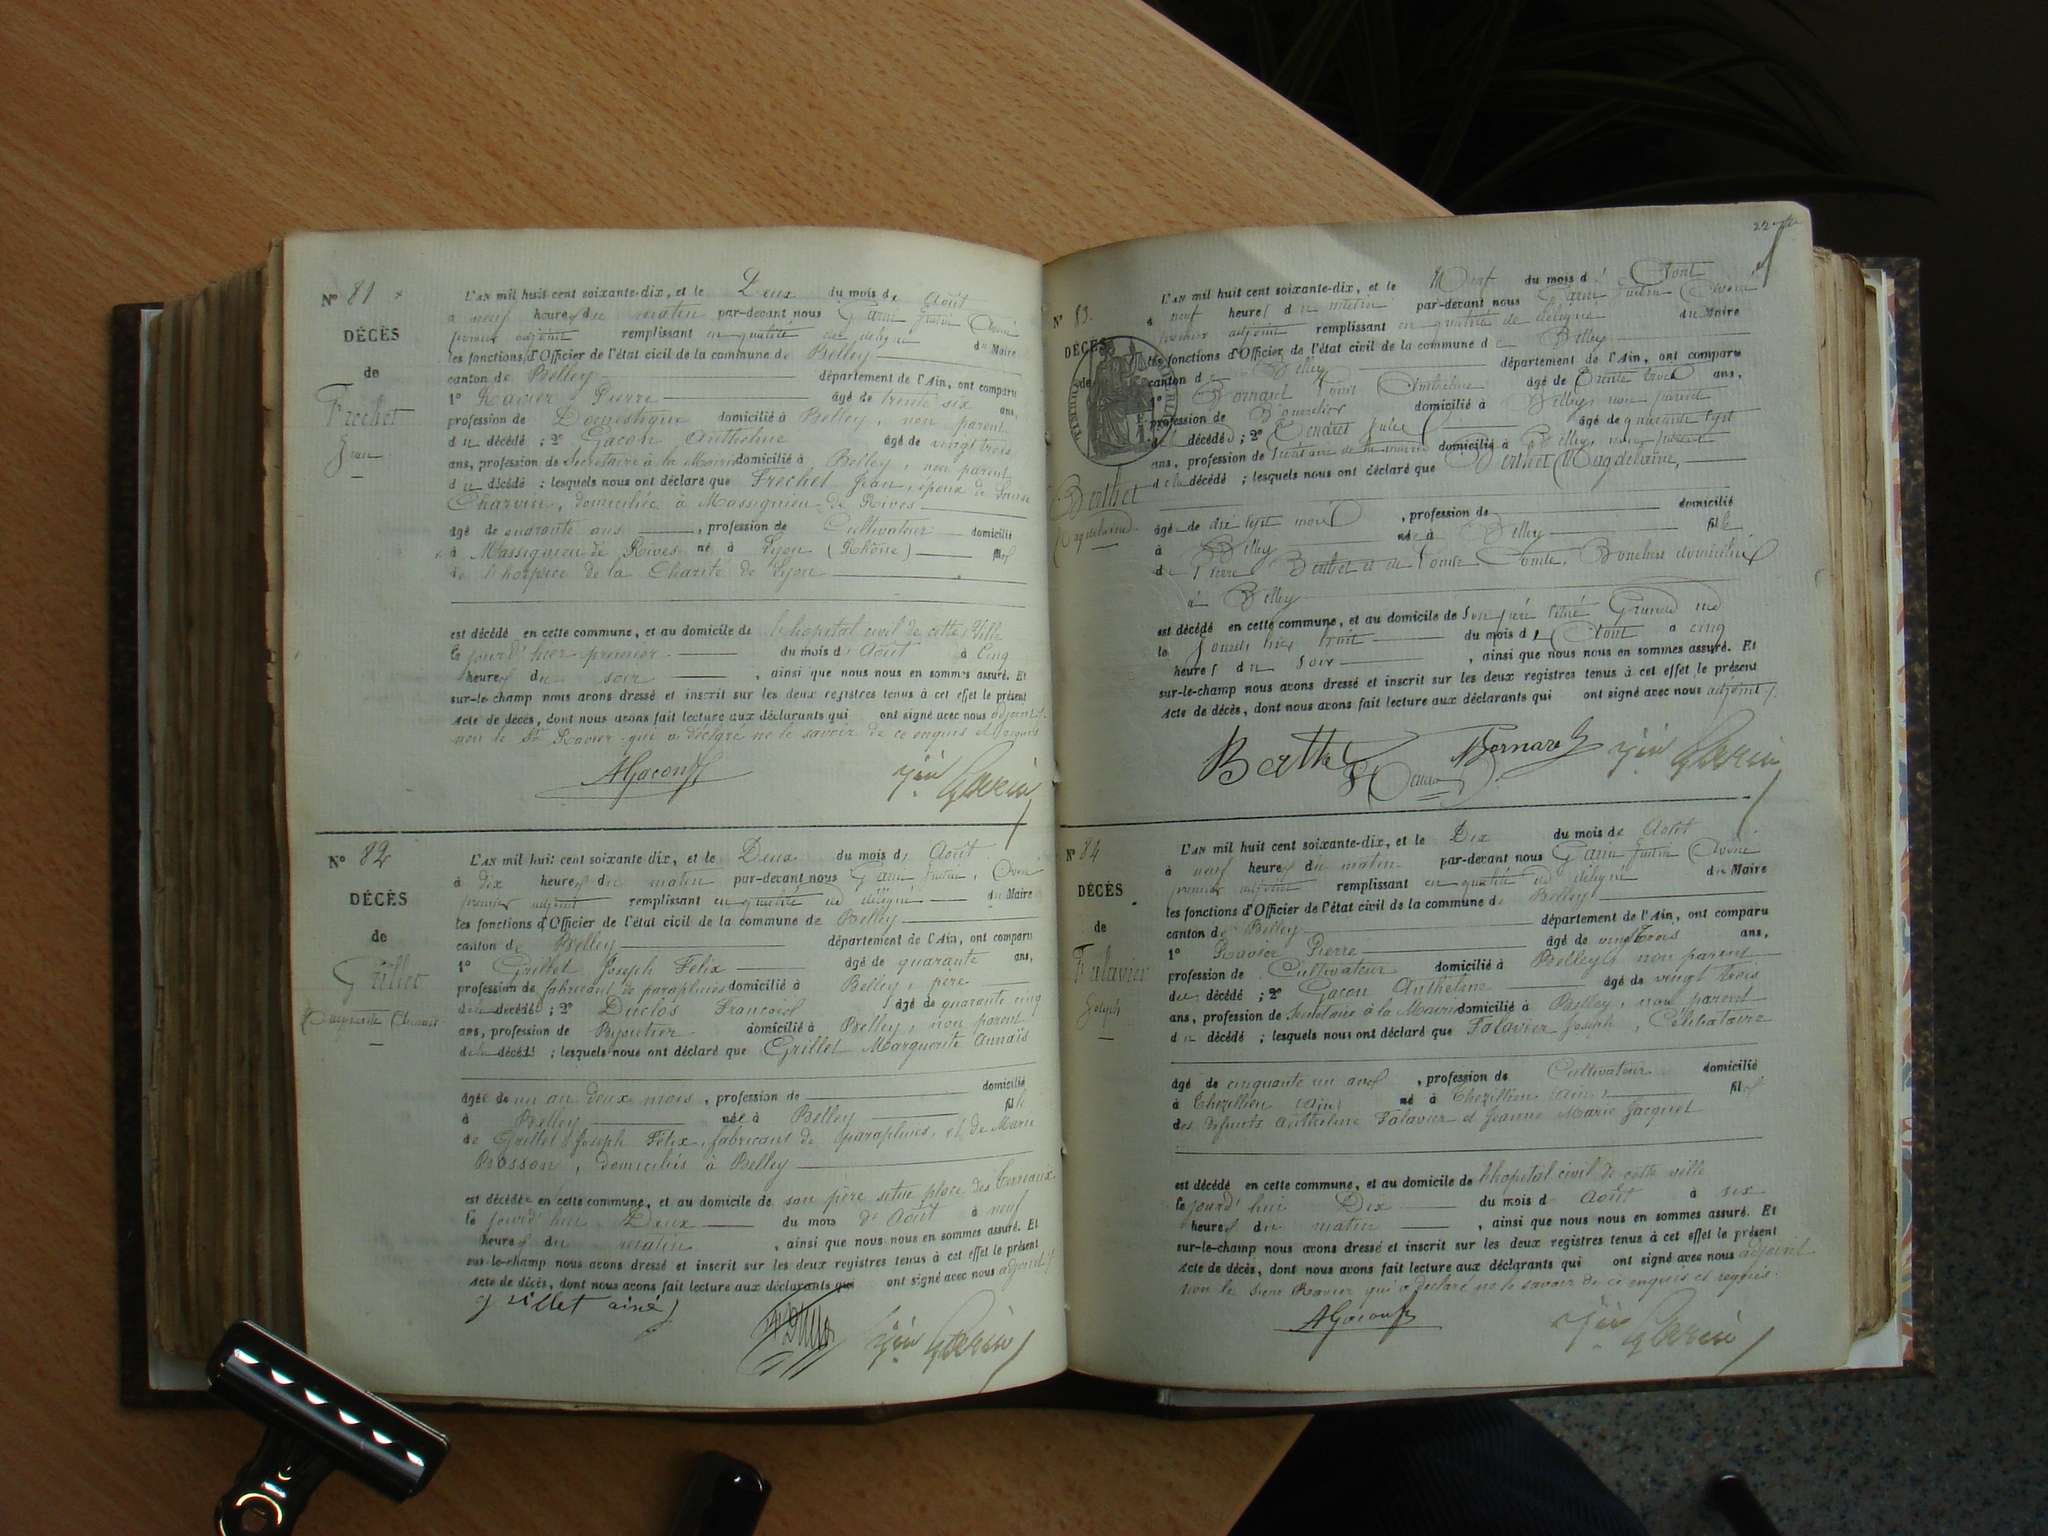 N° 81
DÉCÈS
de
Frechet
Jean
L'AN mil huit cent soixante-dix, et le Deux du mois d Août
à neuf heures du matin par-devant nous Garin Justin
premier adjoint remplissant en qualité de délégué du Maire
les fonctions d'Officier de l'état civil de la commune de Belley
canton de Belley département de l'Ain, ont comparu
1° Ravier Pierre âgé de trente six ans,
profession de Domestique domicilié à Belley, non parent
du décédé ; 2° Gacon Anthelme âgé de vingt trois
ans, profession de Secrétaire à la Mairie domicilié à Belley, non parent
du décédé ; lesquels nous ont déclaré que Frechet Jean, époux de Louise
Charvin, domiciliée à Massignieu de Rives
âgé de quarante ans, profession de Cultivateur domicilié
à Massignieu de Rives né à Lyon (Rhône) fils
de l'hospice de la Charité de Lyon
est décédé en cette commune, et au domicile de l'hopital civil de cette Ville
le jourd'hier premier du mois d'Août à Cinq
heures du soir, ainsi que nous nous en sommes assuré. Et
sur-le-champ nous avons dressé et inscrit sur les deux registres tenus à cet effet le présent
Acte de décès, dont nous avons fait lecture aux déclarants qui ont signé avec nous adjoint
non le Sr Ravier qui a déclaré ne le savoir de ce enquis et requis
AGacon Jin Garin
N° 82
DÉCÈS
de
Grillet
L'AN mil huit cent soixante-dix, et le Deux du mois d Août
à dix heures du matin par-devant nous Garin Justin
premier adjoint remplissant en qualité de délégué du Maire
les fonctions d'Officier de l'état civil de la commune de Belley
canton de Belley département de l'Ain, ont comparu
1° Grillet Joseph Félix âgé de quarante ans,
profession de fabricant de parapluies domicilié à Belley, père
de la décédé ; 2° Duclos François âgé de quarante cinq
ans, profession de Bijoutier domicilié à Belley, non parent
de la décédé ; lesquels nous ont déclaré que Grillet Marguerite Annaïs
âgée de un an deux mois, profession de domicilié
à Belley née à Belley fille
de Grillet Joseph Félix, fabricant de parapluies, et de Marie
Brosson, domiciliés à Belley
est décédée en cette commune, et au domicile de son père située place des Terreaux
le jourd'hui Deux du mois d'Août à neuf
heures du matin, ainsi que nous nous en sommes assuré. Et
sur-le-champ nous avons dressé et inscrit sur les deux registres tenus à cet effet le présent
Acte de décès, dont nous avons fait lecture aux déclarants qui ont signé avec nous adjoint
grillet ainé Jin Garin
N° 83
DÉCÈS
de
Berthet
Magdelaine
L'AN mil huit cent soixante-dix, et le Neuf du mois d' Août
à neuf heures du matin par-devant nous Garin Justin
premier adjoint remplissant en qualité de délégué du Maire
les fonctions d'Officier de l'état civil de la commune de Belley
canton de Belley département de l'Ain, ont comparu
1° Bornard Louis Anthelme âgé de trente trois ans,
profession de domicilié à Belley, non parent
de la décédé ; 2° Tendret Jules âgé de quarante sept
ans, profession de Secrétaire de la mairie domicilié à Belley, non parent
de la décédé ; lesquels nous ont déclaré que Berthet Magdelaine,
âgé de dix sept mois, profession de domicilié
à Belley née à Belley fille
de Pierre Berthet et de Louise Comte, Bouchers domiciliés
à Belley
est décédé en cette commune, et au domicile de son père situé Grande rue
le Jourdhier huit du mois d'Août à cinq
heures du soir, ainsi que nous nous en sommes assuré. Et
sur-le-champ nous avons dressé et inscrit sur les deux registres tenus à cet effet le présent
Acte de décès, dont nous avons fait lecture aux déclarants qui ont signé avec nous adjoint
Berthet Bornard Jin Garin
N° 84
DÉCÈS
de
Falavier
Joseph
L'AN mil huit cent soixante-dix, et le Dix du mois de Août
à neuf heures du matin par-devant nous Garin Justin
premier adjoint remplissant en qualité de délégué du Maire
les fonctions d'Officier de l'état civil de la commune de Belley
canton de Belley département de l'Ain, ont comparu
1° Ravier Pierre âgé de vingt trois ans,
profession de Cultivateur domicilié à Belley, non parent
du décédé ; 2° Gacon Anthelme âgé de vingt trois
ans, profession de Secrétaire à la Mairie domicilié à Belley, non parent
du décédé ; lesquels nous ont déclaré que Falavier Joseph, Célibataire
âgé de cinquante un ans, profession de Cultivateur domicilié
à Thezillieu (ain) né à Thezillieu (ain) fils
des défunts Anthelme Falavier et Jeanne Marie Jacquet
est décédé en cette commune, et au domicile de l'hopital civil de cette ville
le jourd'hui Dix du mois d Août à six
heures du matin, ainsi que nous nous en sommes assuré. Et
sur-le-champ nous avons dressé et inscrit sur les deux registres tenus à cet effet le présent
Acte de décès, dont nous avons fait lecture aux déclarants qui ont signé avec nous adjoint
non le sieur Ravier qui a déclaré ne le savoir de ce enquis et requis.
AGacon Jin Garin